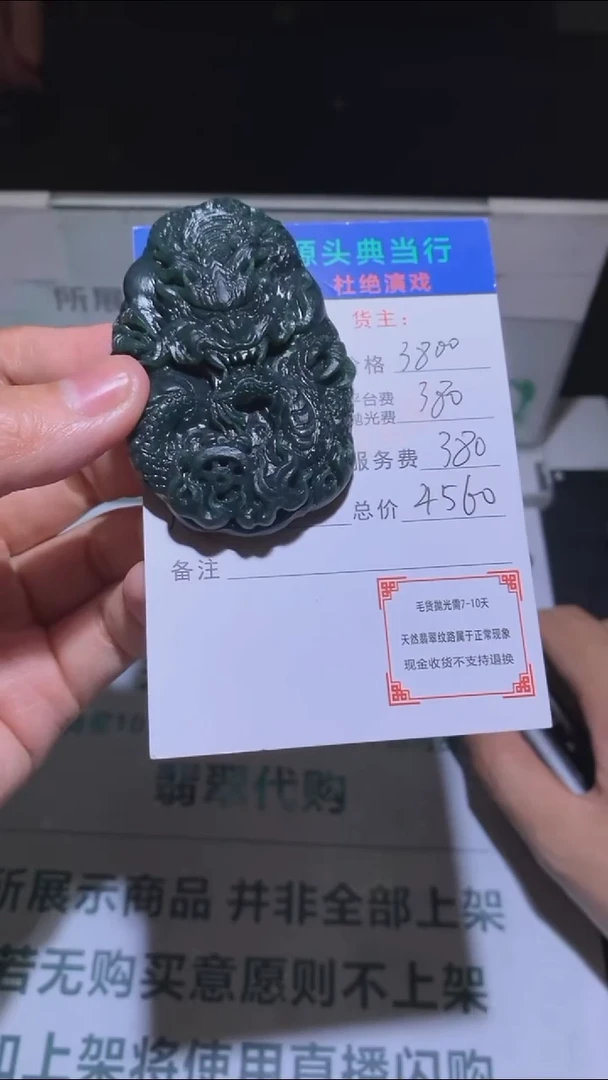 源头典当行
杜绝演戏
货主：
价格 3800
平台费
抛光费 380
服务费 380
总价 4560
备注
毛货抛光需7-10天
天然翡翠纹路属于正常现象
现金收货不支持退换
翡翠代购
所展示商品 并非全部上架
若无购买意愿则不上架
如上架将使用直播闪购